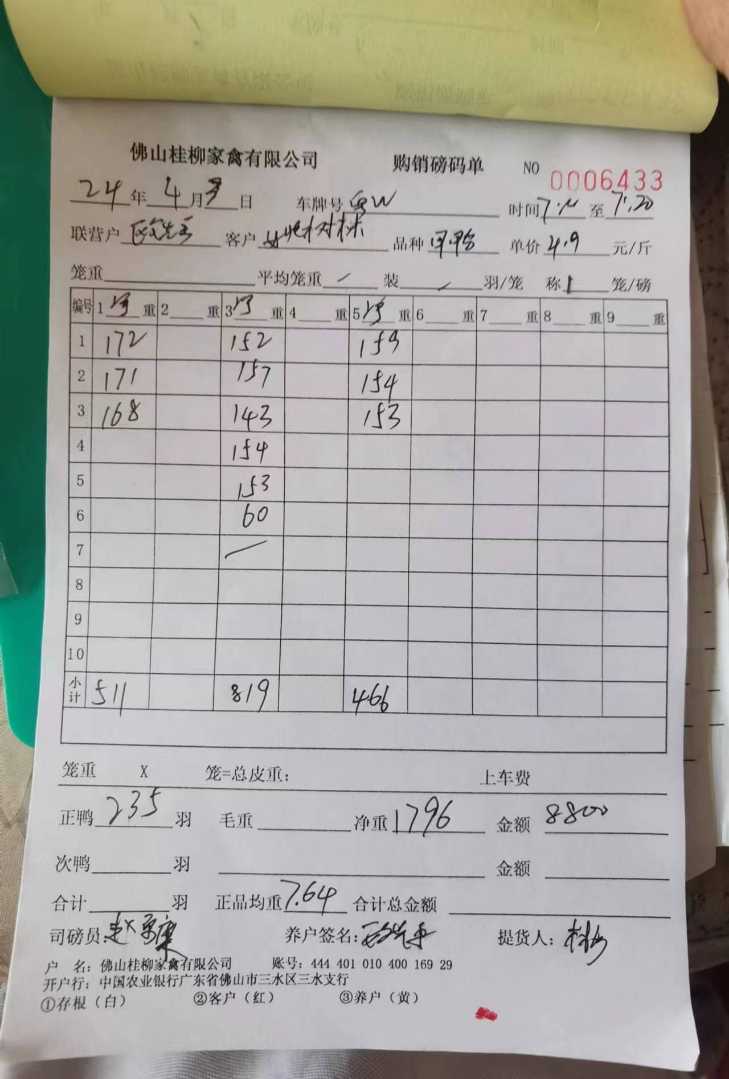 佛山桂柳家禽有限公司 购销磅码单 NO 0006433
24 年 4 月 日 车牌号 时间 7: 至 7:20
联营户 客户 品种 单价 4.9 元/斤
笼重 平均笼重 / 装 / 羽/笼 称 1 笼/磅
编号 1 重 2 重 3 重 4 重 5 重 6 重 7 重 8 重 9 重
1 172 152 159
2 171 157 154
3 168 143 153
4 154
5 153
6 60
7 /
8
9
10
小计 511 819 466
笼重 X 笼=总皮重: 上车费
正鸭 235 羽 毛重 净重 1796 金额 8800
次鸭 羽 金额
合计 羽 正品均重 7.64 合计总金额
司磅员: 养户签名: 提货人:
户 名: 佛山桂柳家禽有限公司 账号: 444 401 010 400 169 29
开户行: 中国农业银行广东省佛山市三水区三水支行
①存根（白） ②客户（红） ③养户（黄）